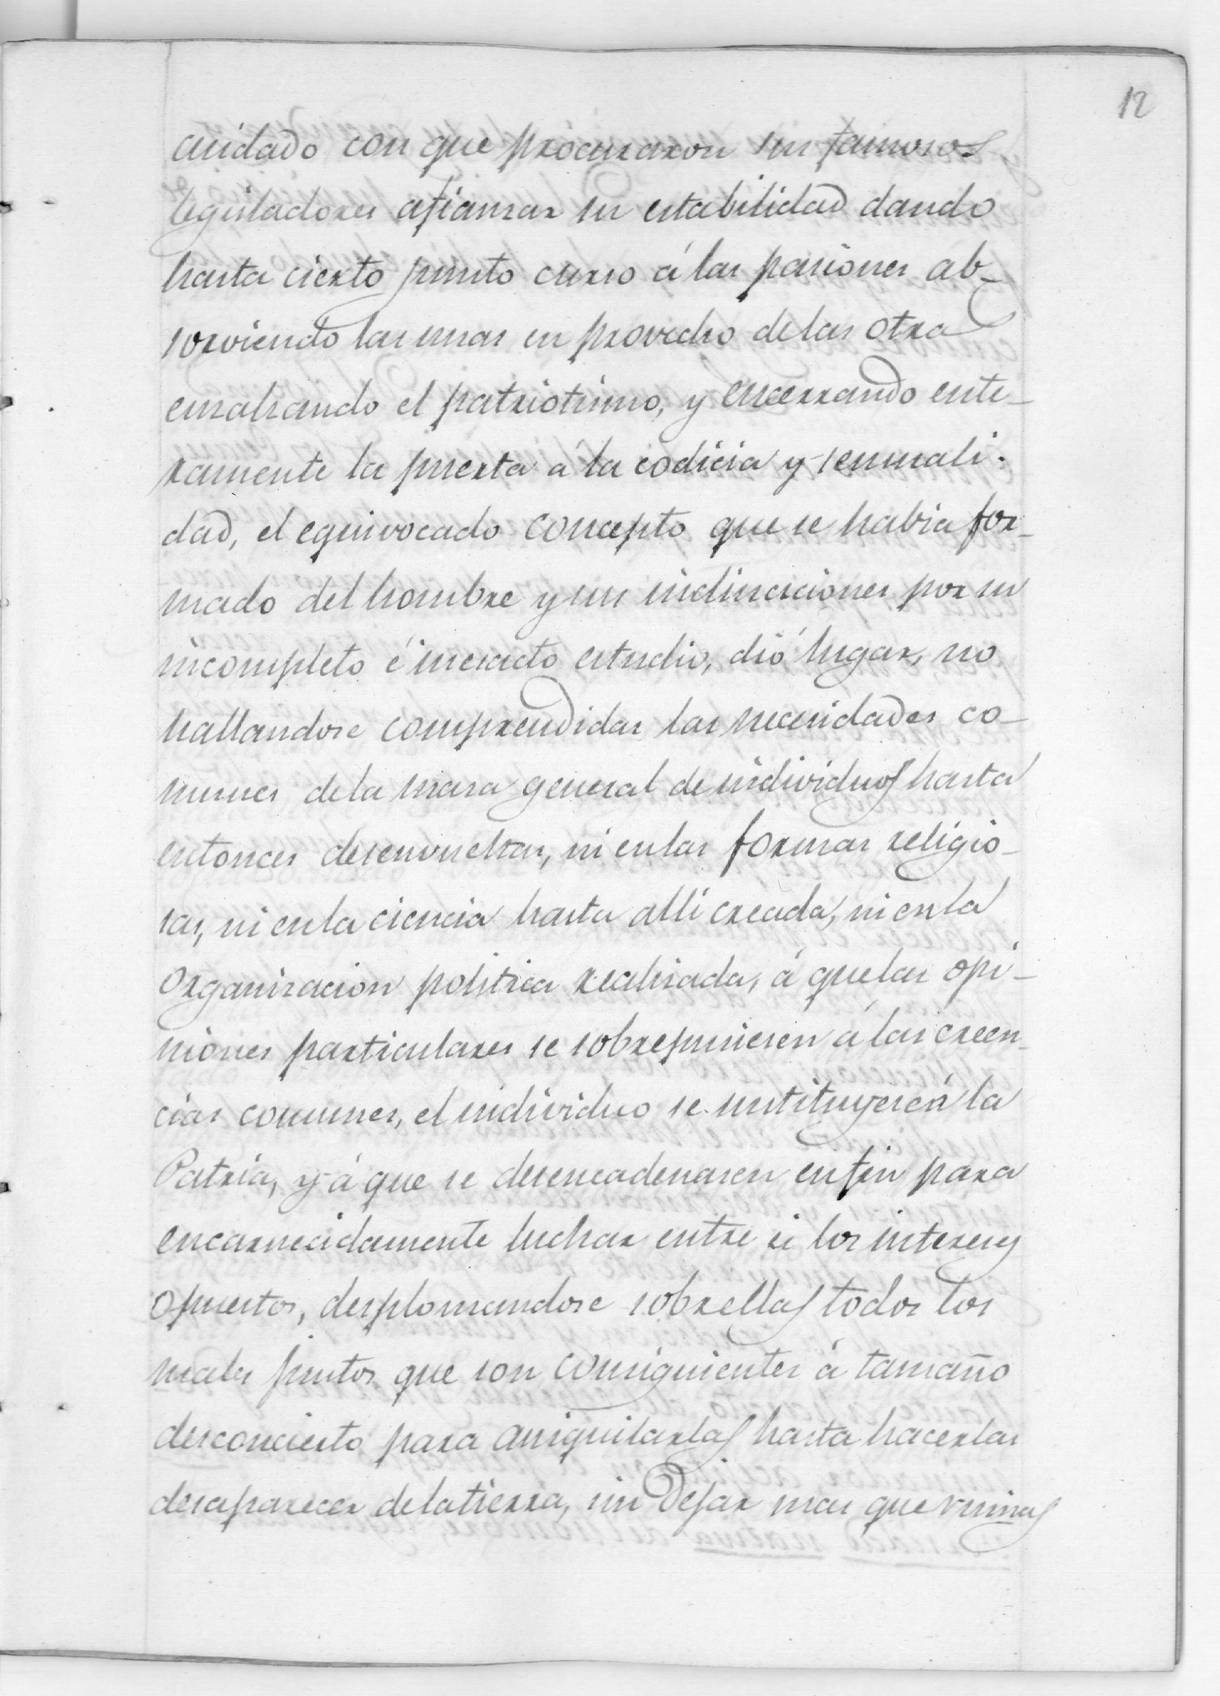 12
cuidado con que procuraron sus famosos
legisladores afianzar su estabilidad dando
hasta cierto punto curso á las pasiones ab-
sorviendo las unas en provecho de las otra
ensalzando el patriotismo, y encerrando ente-
ramente la puerta a la codicia y sensuali-
dad, el equivocado concepto que se habia for-
mado del hombre y sus inclinaciones por su
incompleto é inexacto estudio, dió lugar, no
hallandose comprendidas las necesidades co-
munes de la masa general de individuos hasta
entonces desenvueltas, ni en las formas religio-
sas, ni en la ciencia hasta alli creada, ni en la
organizacion politica realizada, á que las opi-
niones particulares se sobrepusiesen á las creen-
cias comunes, el individuo se sustituyese á la
Patria, y á que se desencadenasen en fin para
encarnecidamente luchar entre si los intereses
opuestos, desplomandose sobrellas todos los
males juntos que son consiguientes á tamaño
desconcierto para aniquilarlas hasta hacerlas
desaparecer de la tierra, sin dejar mas que ruinas